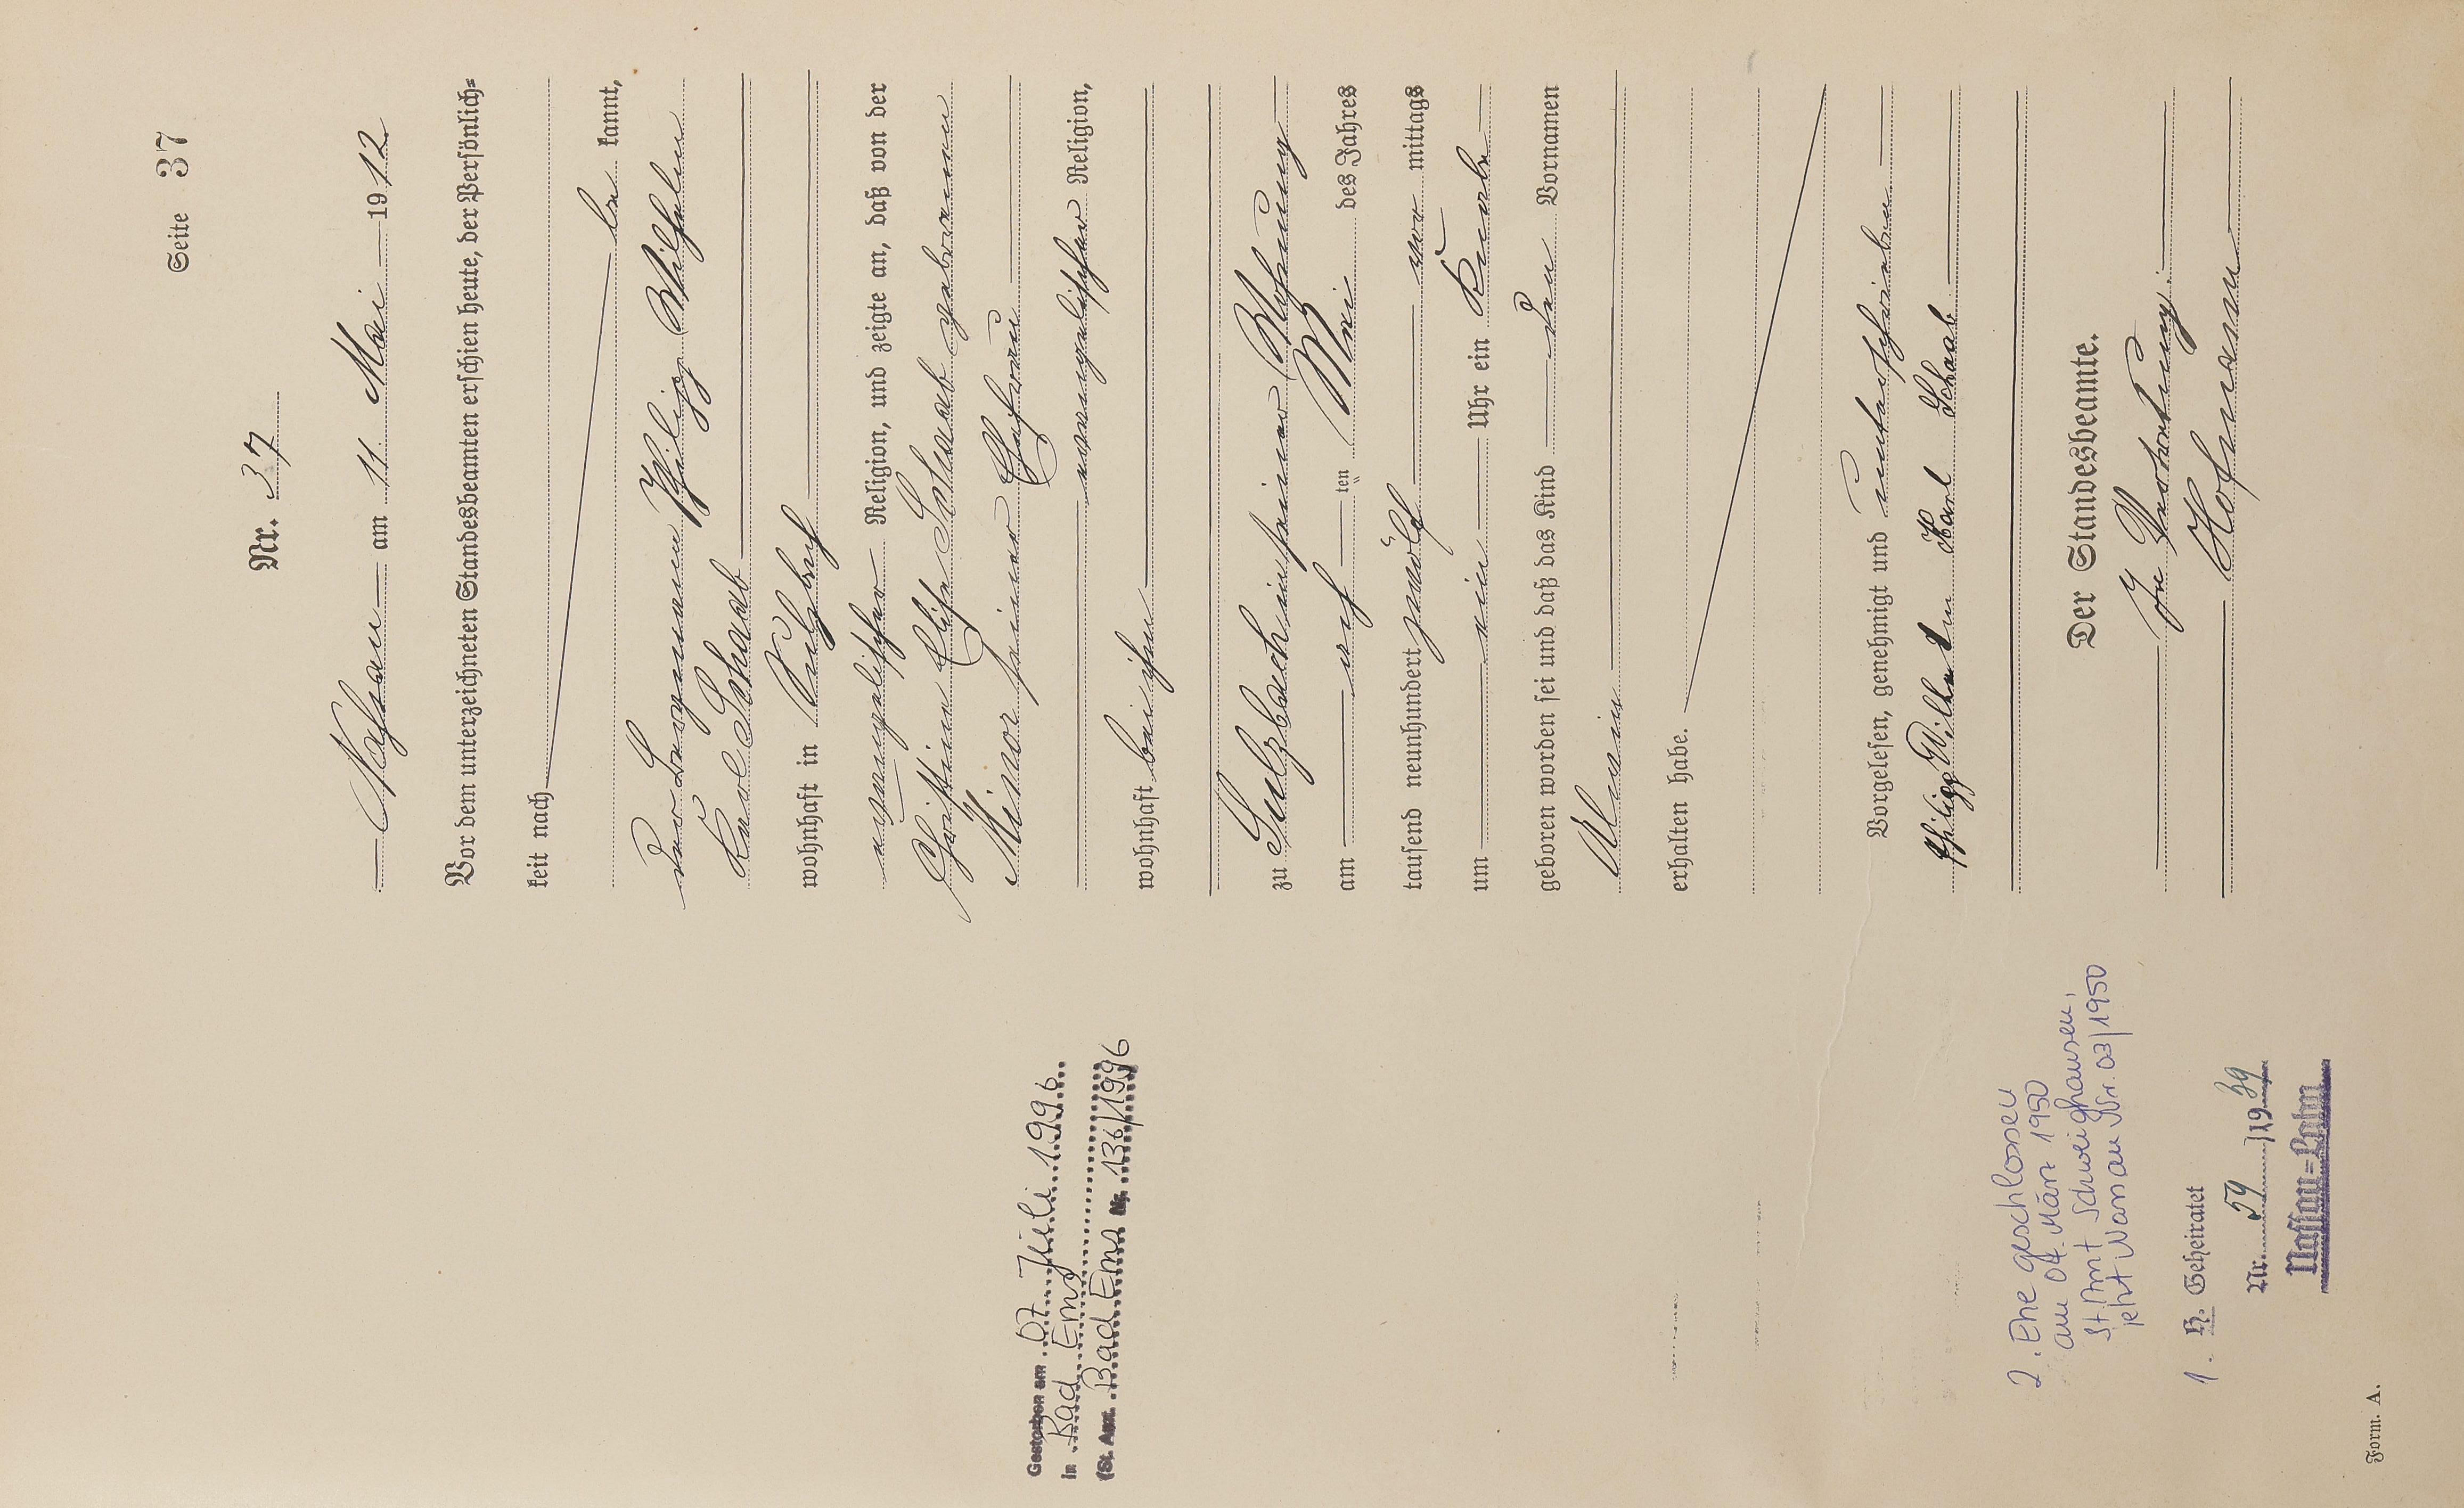 Seite 37
Nr. 37
Nassau am 11. Mai 1912
Vor dem unterzeichneten Standesbeamten erschien heute, der Persönlich-
keit nach
be kannt,
der Bergmann Philipp Wilhelm
Karl Schwab
wohnhaft in Sulzbach
evangelischer Religion, und zeigte an, daß von der
Christine Elise Schwab geborenen
Minor seiner Ehefrau
evangelischer Religion,
wohnhaft bei ihm
zu Sulzbach in seiner Wohnung
am acht ten Mai des Jahres
tausend neunhundert zwölf vor mittags
um ein Uhr ein Knabe
geboren worden sei und daß das Kind den Vornamen
Alwin
erhalten habe.
Vorgelesen, genehmigt und unterschrieben
Philipp Wilhelm Karl Schwab
Der Standesbeamte.
In Vertretung:
Hofmann
Gestorben am 07. Juli 1996
in Bad Ems
(St. Amt. Bad Ems Nr. 136/1996
2. Ehe geschlossen
am 04. März 1950
St.Amt Schweighausen,
jetzt Nassau Nr. 03/1950
1. H. Geheiratet
Nr. 59 /1939
Nassau=Lahn
Form. A.